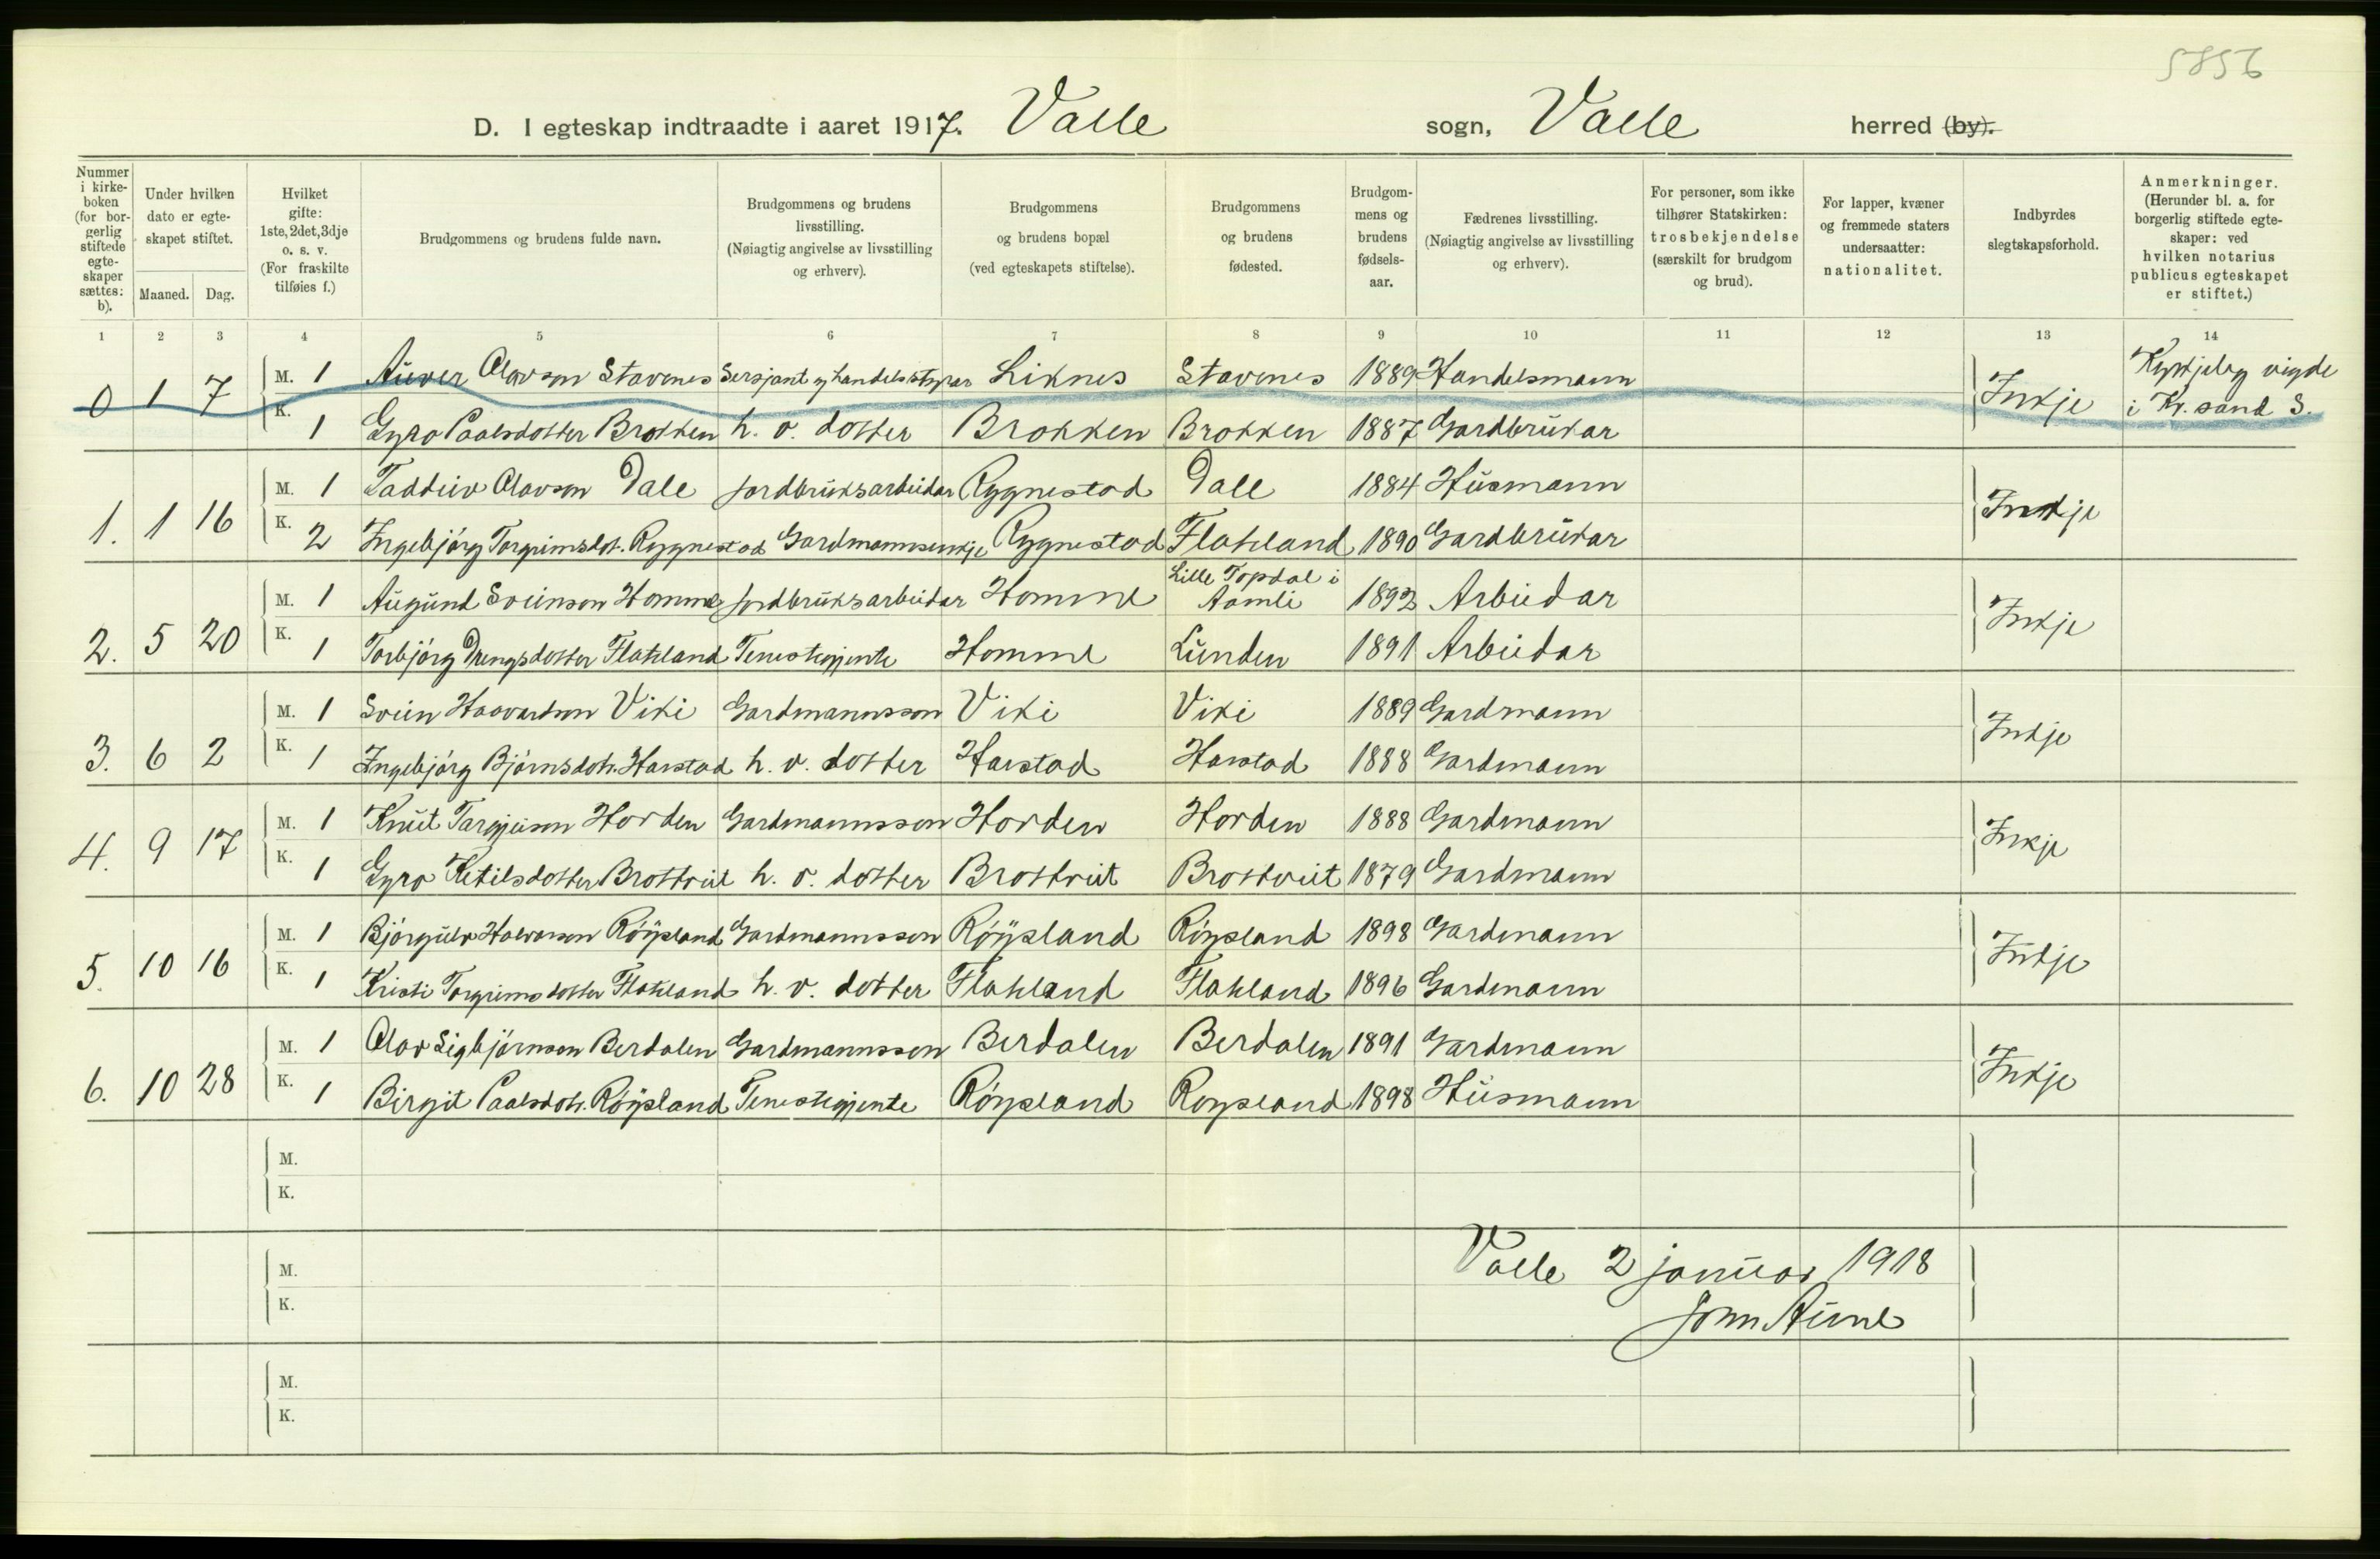 5856
D. I egteskap indtraadte i aaret 1917. Valle sogn, Valle herred (by).
Nummer i kirke- boken (for bor- gerlig stiftede egte- skaper sættes: b).
Under hvilken dato er egte- skapet stiftet.
Maaned. Dag.
Hvilket gifte: 1ste, 2det, 3dje o. s. v. (For fraskilte tilføies f.)
Brudgommens og brudens fulde navn.
Brudgommens og brudens livsstilling. (Nøiagtig angivelse av livsstilling og erhverv).
Brudgommens og brudens bopæl (ved egteskapets stiftelse).
Brudgommens og brudens fødested.
Brudgom- mens og brudens fødsels- aar.
Fædrenes livsstilling. (Nøiagtig angivelse av livsstilling og erhverv).
For personer, som ikke tilhører Statskirken: trosbekjendelse (særskilt for brudgom og brud).
For lapper, kvæner og fremmede staters undersaatter: nationalitet.
Indbyrdes slegtskapsforhold.
Anmerkninger. (Herunder bl. a. for borgerlig stiftede egte- skaper: ved hvilken notarius publicus egteskapet er stiftet.)
1 2 3 4 5 6 7 8 9 10 11 12 13 14
0 1 7 M. 1 Auver Olavson Stavenes Sersjant og handelsstyrar Liknes Stavenes 1889 Handelsmann Inkje Kyrkjeleg vigde i Kr.sand S.
K. 1 Gyro Paalsdotter Brokken h. v. dotter Brokken Brokken 1887 Gardbrukar
1. 1 16 M. 1 Taddeiv Olavson Dale Jordbruksarbeidar Rygnestad Dale 1884 Husmann Inkje
K. 2 Ingebjörg Torgrimsdot. Rygnestad Gardmannsenkje Rygnestad Flateland 1890 Gardbrukar
2. 5 20 M. 1 Augund Sveinson Homme Jordbruksarbeidar Homme Lille Topdal i Aamli 1892 Arbeidar Inkje
K. 1 Torbjörg Drengsdotter Flateland Tenestegjente Homme Lunden 1891 Arbeidar
3. 6 2 M. 1 Svein Haavardson Viki Gardmannsson Viki Viki 1889 Gardmann Inkje
K. 1 Ingebjörg Björnsdotr. Harstad h. v. dotter Harstad Harstad 1888 Gardmann
4. 9 17 M. 1 Knut Targjeison Horden Gardmannsson Horden Horden 1888 Gardmann Inkje
K. 1 Gyro Ketilsdotter Brottveit h. v. dotter Brottveit Brottveit 1879 Gardmann
5. 10 16 M. 1 Björgulv Halvorson Röysland Gardmannsson Röysland Röysland 1898 Gardmann Inkje
K. 1 Kristi Torgrimsdotter Flateland h. v. dotter Flateland Flateland 1896 Gardmann
6. 10 28 M. 1 Olav Sigbjörnson Berdalen Gardmannsson Berdalen Berdalen 1891 Gardmann Inkje
K. 1 Birgit Paalsdotr. Röysland Tenestegjente Röysland Roysland 1898 Husmann
M.
K.
M.
K.
Valle 2 januar 1918
John Aune
M.
K.